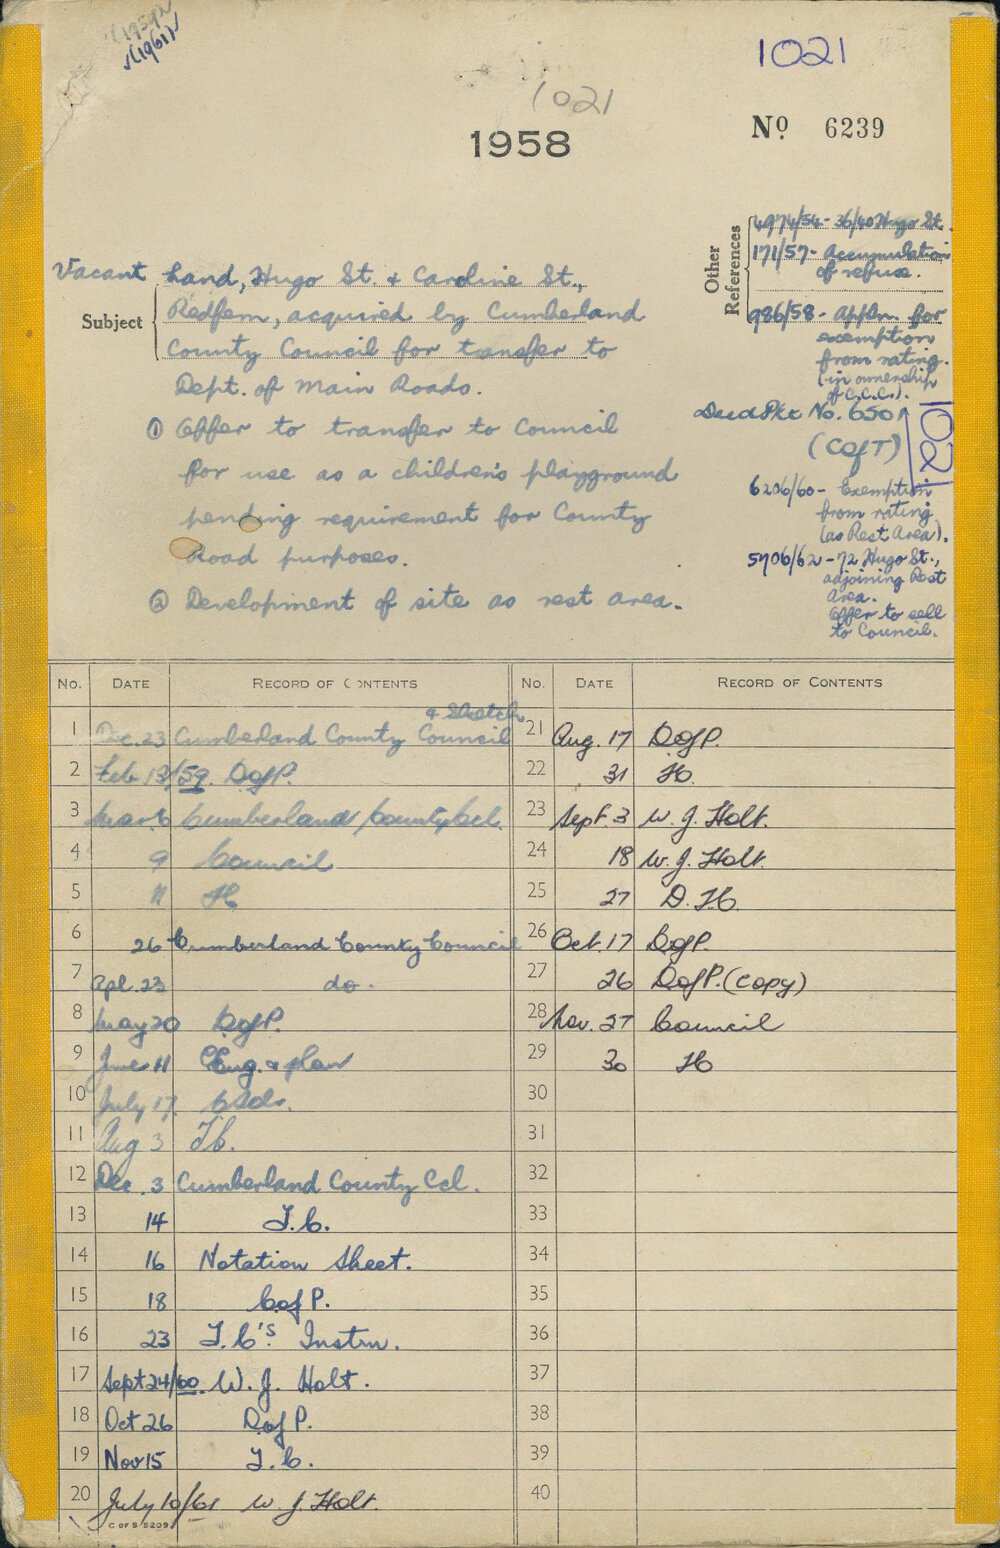 (1959)
√(1961)
1021
1021
1958
No 6239
Other References
4974/54 - 36/40 Hugo St.
171/57 - Accumulation
of refuse.
986/58 - Appln. for
exemption
from rating.
(in ownership
of C.C.C.).
Deed Pkt No. 6501
(C of T)
1021
6206/60 - Exemption
from rating
(as Rest Area).
5706/62 - 72 Hugo St.,
adjoining Rest
Area.
Offer to sell
to Council.
Subject
Vacant Land, Hugo St. & Caroline St.,
Redfern, acquired by Cumberland
County Council for transfer to
Dept. of Main Roads.
① Offer to transfer to Council
for use as a children's playground
pending requirement for County
Road purposes.
② Development of site as rest area.
No. DATE RECORD OF CONTENTS
& Sketch
1 Dec. 23 Cumberland County Council
2 Feb 13/59. D of P.
3 Mar. 6 Cumberland County Ccl.
4 9 Council
5 11 H
6 26 Cumberland County Council
7 Apl. 23 do.
8 May 20 D of P.
9 June 11 Eng. & plan
10 July 17
11 Aug 3 T.C.
12 Dec. 3 Cumberland County Ccl.
13 14 T.C.
14 16 Notation Sheet.
15 18 C of P.
16 23 T.C's. Instrn.
17 Sept 24/60. W. J. Holt.
18 Oct 26 D of P.
19 Nov 15 T.C.
20 July 10/61 W. J. Holt.
C OF S 5209
No. DATE RECORD OF CONTENTS
21 Aug. 17 D of P.
22 31 H.
23 Sept. 3 W. J. Holt.
24 18 W. J. Holt.
25 27 D. H.
26 Oct. 17 D of P.
27 26 D of P. (copy)
28 Nov. 27 Council
29 30 H
30
31
32
33
34
35
36
37
38
39
40